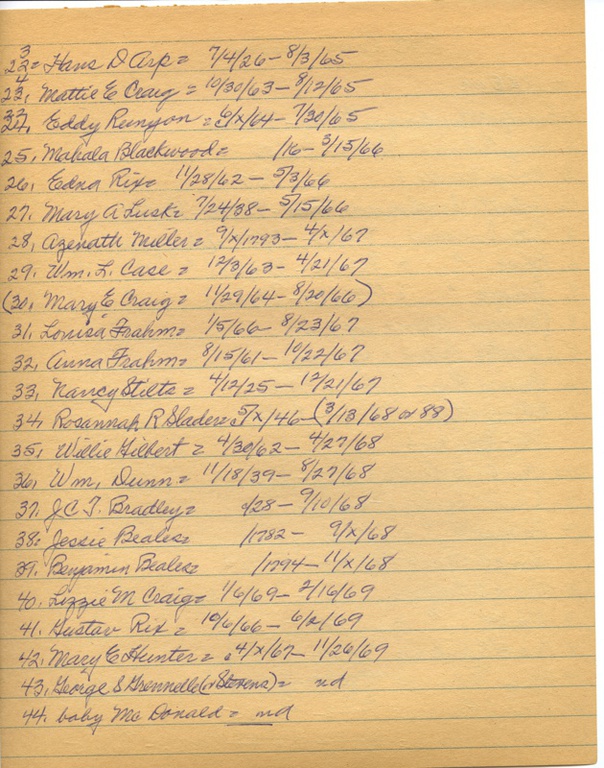 3
22= Hans D Arp = 7/4/26 - 8/3/65
4
23, Mattie E Craig = 10/30/63 - 8/12/65
24, Eddy Runyon = 6/x/64 - 7/30/65
25, Mahala Blackwood = /16 - 3/15/66
26, Edna Rix = 11/28/62 - 5/3/66
27, Mary A Lusk = 7/24/38 - 5/15/66
28, Azenath Miller = 9/x/1793 - 4/x/67
29. Wm. L. Case = 12/3/63 - 4/21/67
(30, Mary E Craig = 11/29/64 - 8/20/66)
31, Louisa Frahm = 1/5/66 - 8/23/67
32, Anna Frahm = 8/15/61 - 10/22/67
33, Nancy Stilts = 4/12/25 - 12/21/67
34, Rosannah R Slader = 5/x/46 - (3/13/68 or 88)
35, Willie Gilbert = 4/30/62 - 4/27/68
36, Wm, Dunn = 11/18/39 - 8/27/68
37, J C T. Bradley = /28 - 9/10/68
38. Jessie Beales = /1782 - 9/x/68
39. Benjamin Beales = /1794 - 11/x/68
40. Lizzie M Craig = 1/6/69 - 2/16/69
41. Gustav Rix = 10/6/66 - 6/x/69
42, Mary E Hunter = 4/x/67 - 11/26/69
43, George S Grennelle (or Stevens) = nd
44. baby Mc Donald = nd